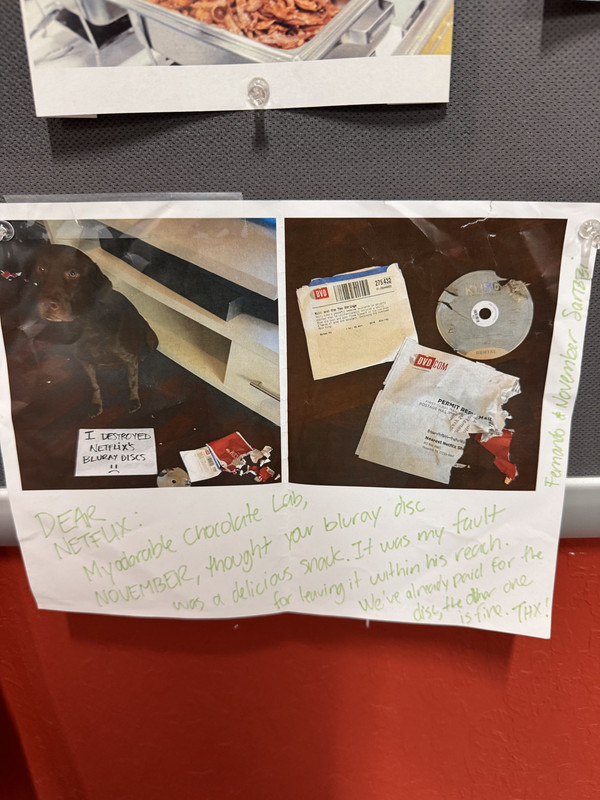 I DESTROYED
NETFLIX'S
BLURAY DISCS
:(
DVD
375432
DVD.COM
PERMIT
Nearest Netflix
RENTAL
DEAR
NETFLIX:
My adorable Chocolate Lab,
NOVEMBER, thought your bluray disc
was a delicious snack. It was my fault
for leaving it within his reach.
We've already paid for the
disc, the other one
is fine. THX!
Fernando & November